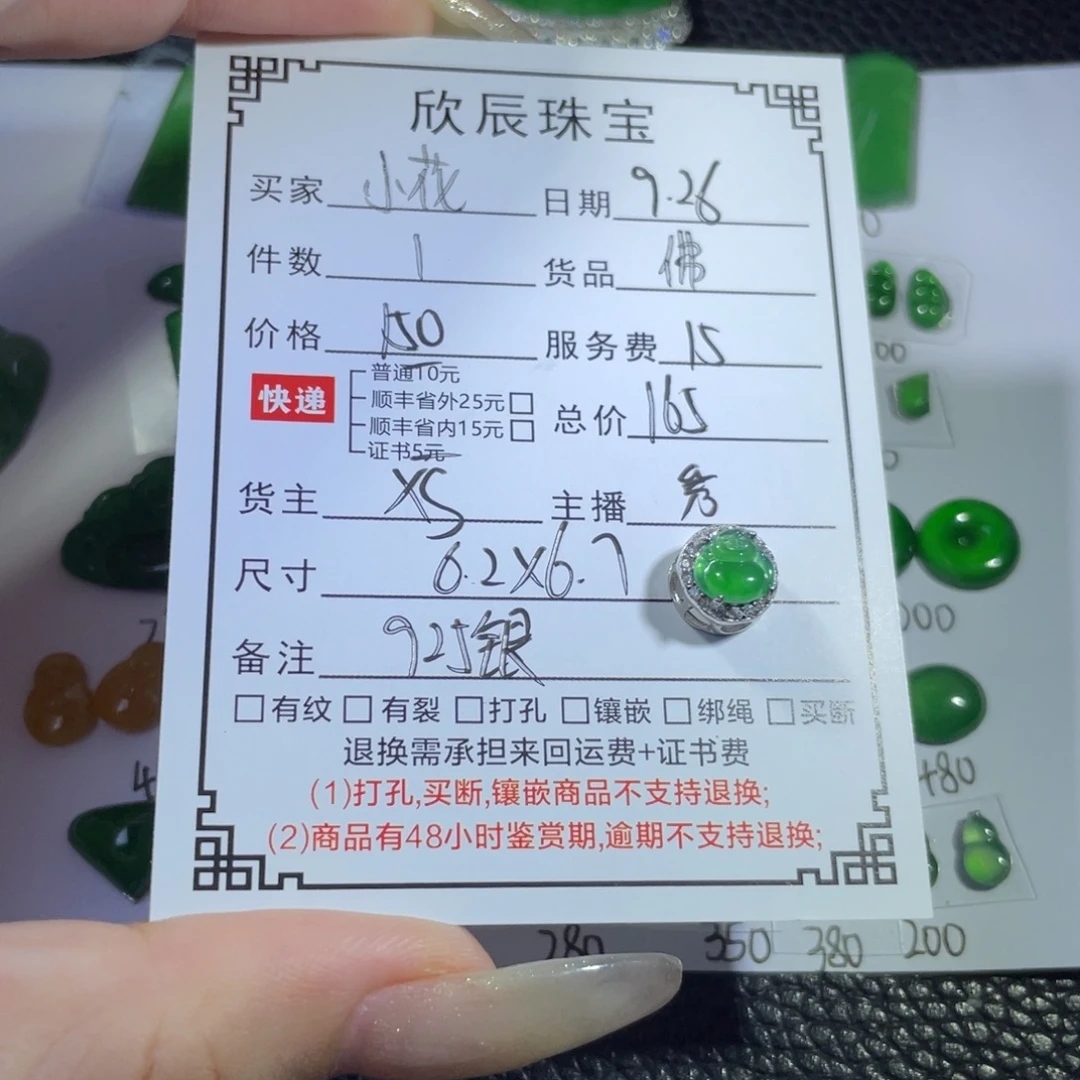 欣辰珠宝
买家 小花 日期 9.26
件数 1 货品 佛
价格 150 服务费 15
快递 普通10元
顺丰省外25元□ 总价 165
顺丰省内15元□
证书5元
货主 XS 主播 秀
尺寸 6.2X6.7
备注 925银
□有纹 □有裂 □打孔 □镶嵌 □绑绳 □买断
退换需承担来回运费+证书费
(1)打孔,买断,镶嵌商品不支持退换;
(2)商品有48小时鉴赏期,逾期不支持退换;
480
280 350 380 200